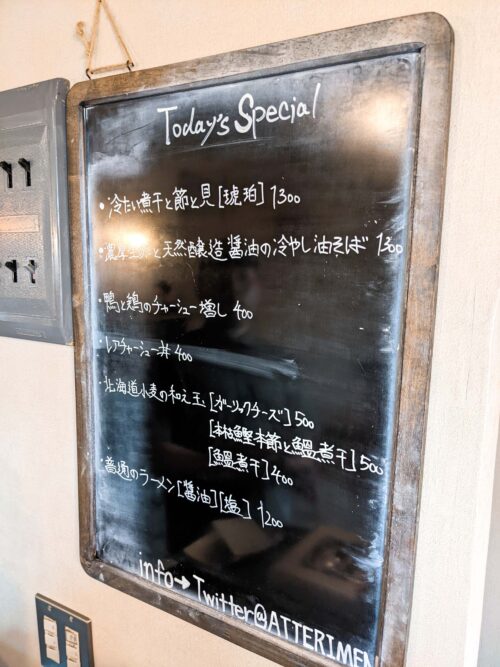 Today's Special
・冷たい煮干と節と貝[琥珀] 1300
・濃厚 と天然醸造醤油の冷やし油そば 1300
・鴨と鶏のチャーシュー増し 400
・レアチャーシュー丼 400
・北海道小麦の和え玉[ガーリックチーズ] 500
[本枯鰹本節と鰮煮干] 500
[鰮煮干] 400
・普通のラーメン[醤油][塩] 1200
info→Twitter@ATTERIMEN